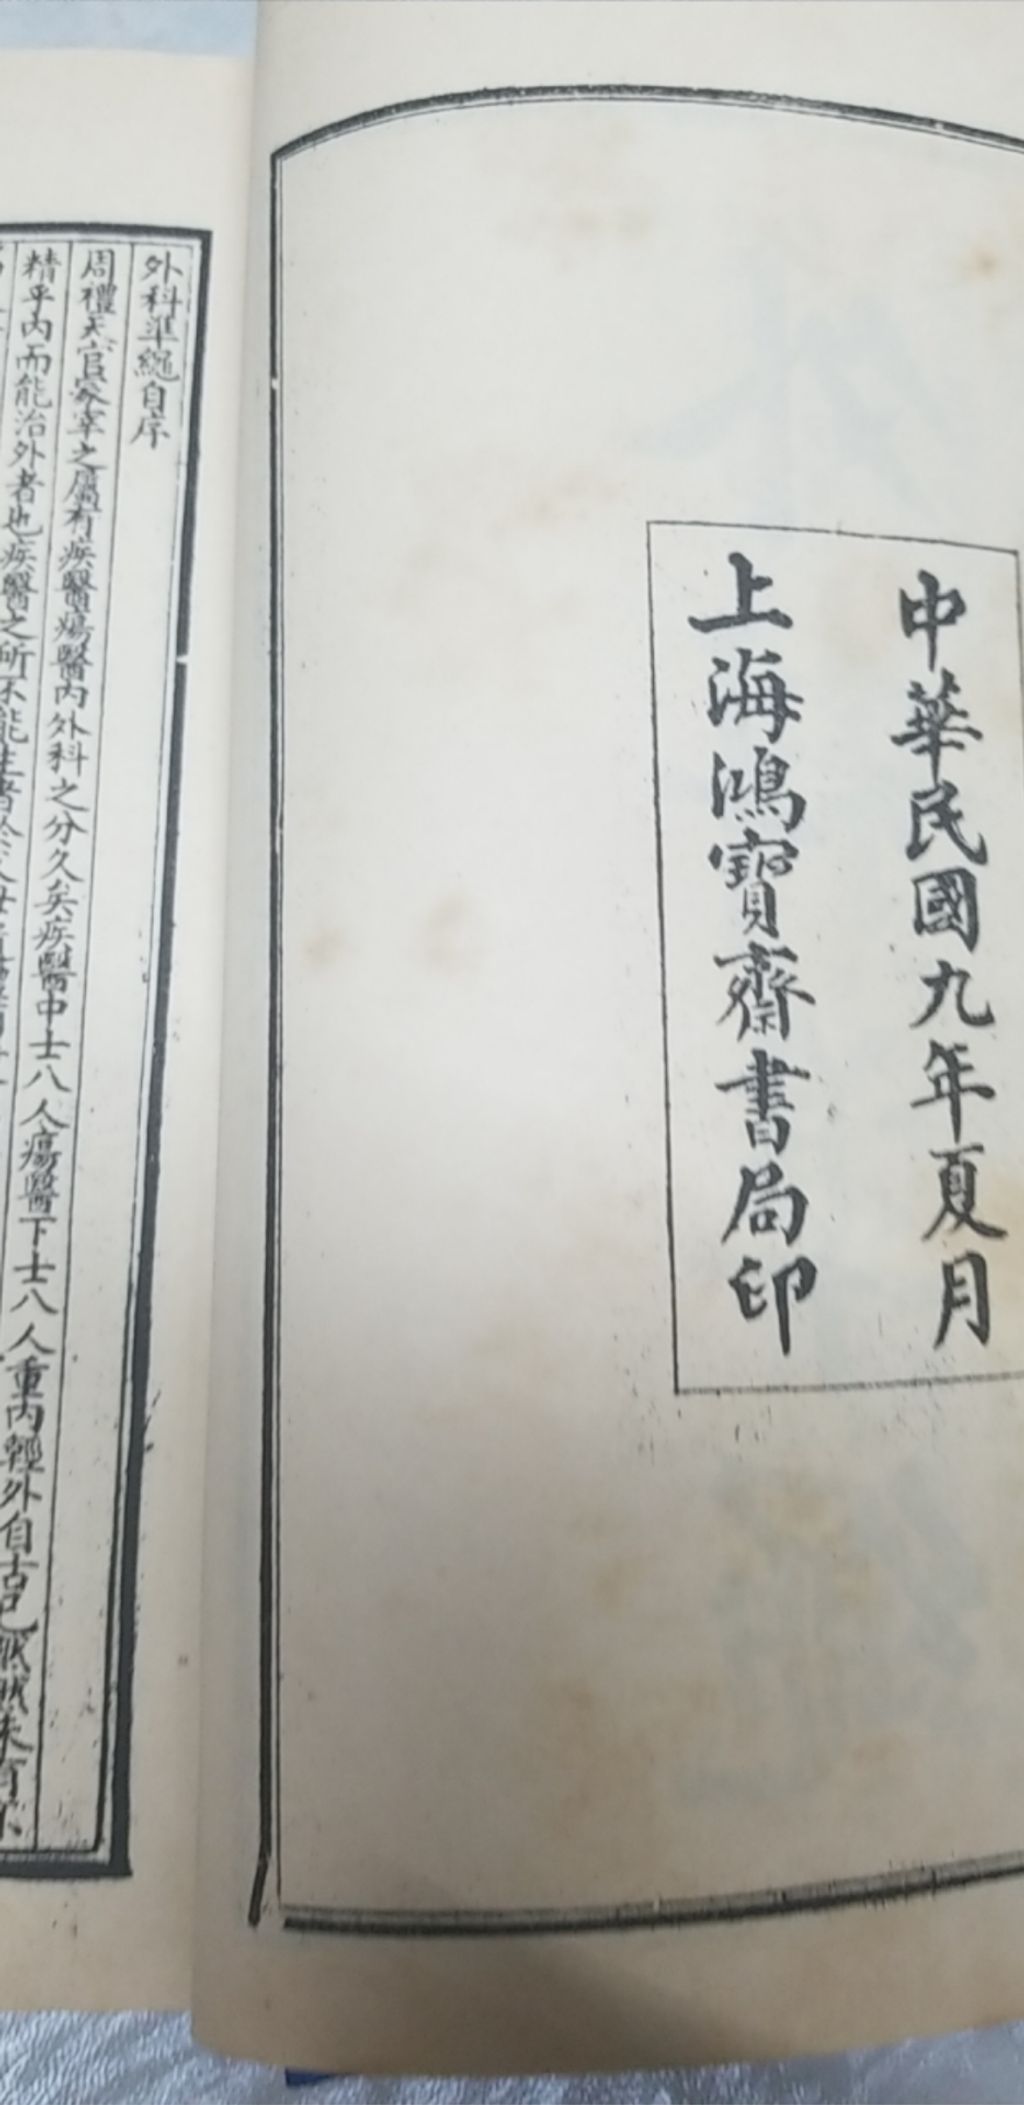 中華民國九年夏月
上海鴻寶齋書局印
外科準繩自序
周禮天官冢宰之屬有疾醫瘍醫內外科之分久矣疾醫中士八人瘍醫下士八人重內輕外自古已然然未有不
精乎內而能治外者也疾醫之所不能生者